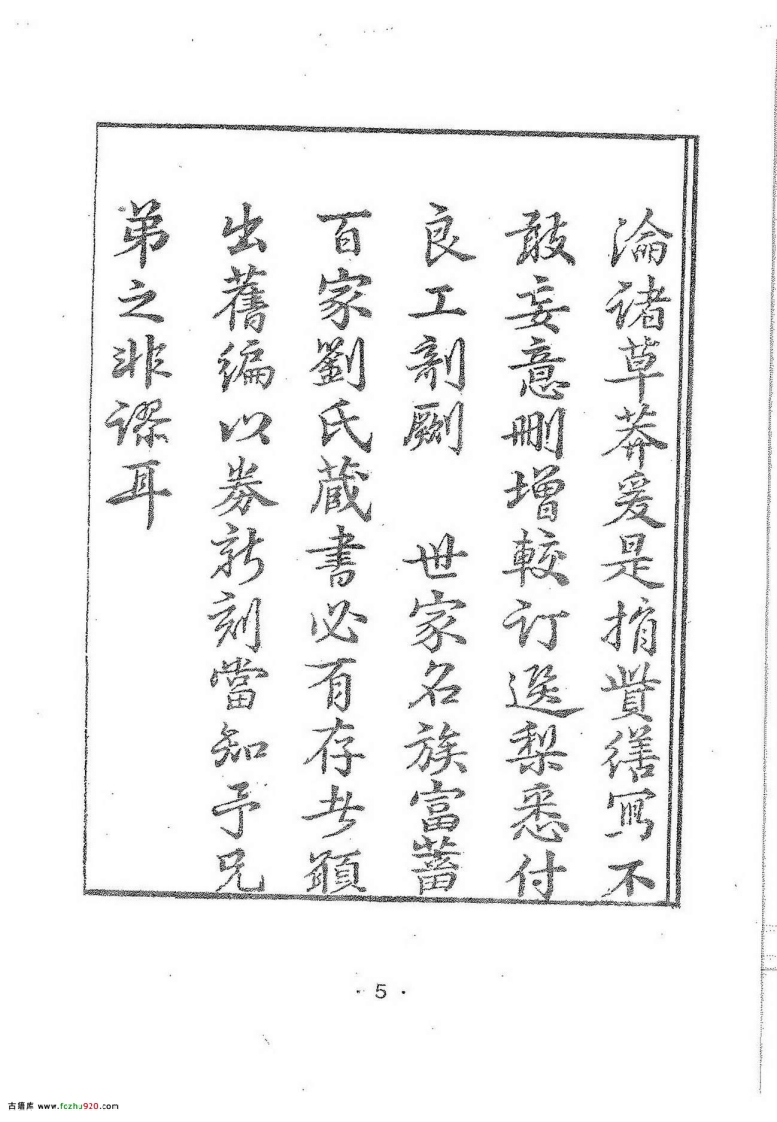 淪諸草莽爰是捐貲繕寫不
敢妄意刪增較訂選梨悉付
良工剞劂 世家名族富蓄
百家劉氏蔵書必有存者願
出舊編以券新刻當知予兄
弟之非謬耳
· 5 ·
古籍库 www.fozhu920.com